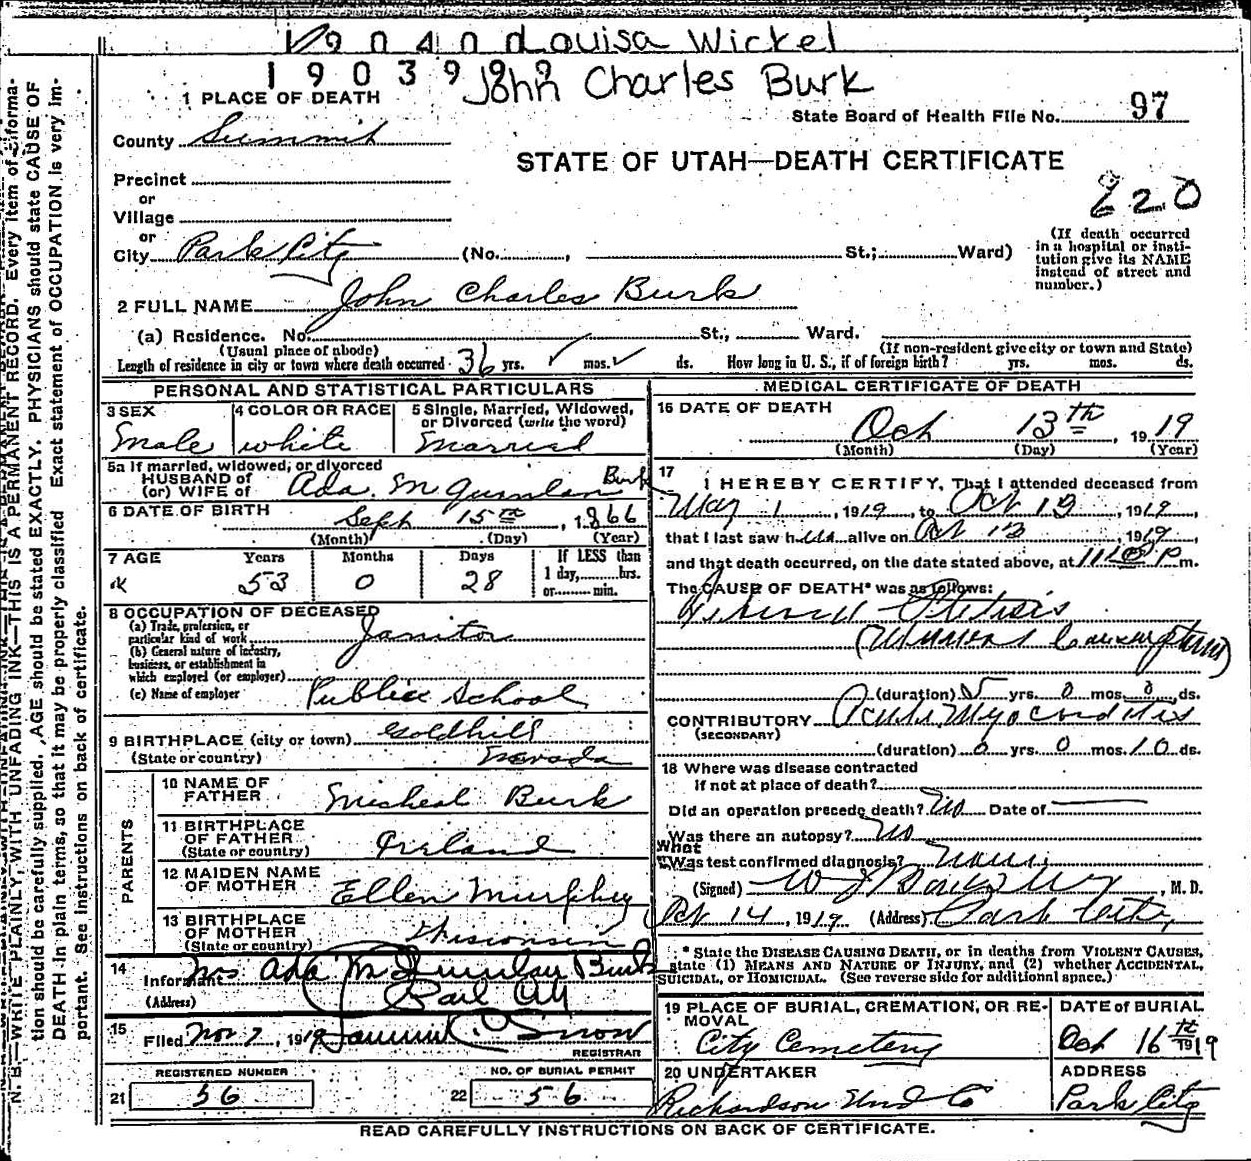 19040 0 Louisa Wickel
190399 9 John Charles Burk
1 PLACE OF DEATH
State Board of Health File No. 97
County Summit
STATE OF UTAH—DEATH CERTIFICATE
Precinct
or
Village
220
or
City Park City (No. , St.; Ward)
(If death occurred in a hospital or insti- tution give its NAME instead of street and number.)
2 FULL NAME John Charles Burk
(a) Residence. No. St., Ward.
(Usual place of abode) (If non-resident give city or town and State)
Length of residence in city or town where death occurred 36 yrs. mos. ds. How long in U. S., if of foreign birth? yrs. mos. ds.
PERSONAL AND STATISTICAL PARTICULARS
3 SEX 4 COLOR OR RACE 5 Single, Married, Widowed, or Divorced (write the word)
Male white Married
5a If married, widowed, or divorced
HUSBAND OF
(or) WIFE of Ada. M Quinlan Burk
6 DATE OF BIRTH Sept 15th, 1866
(Month) (Day) (Year)
7 AGE Years Months Days If LESS than
1 day, hrs.
or min.
53 0 28
8 OCCUPATION OF DECEASED
(a) Trade, profession, or
particular kind of work Janitor
(b) General nature of industry,
business, or establishment in
which employed (or employer)
(c) Name of employer Public School
9 BIRTHPLACE (city or town) Goldhill
(State or country) Nevada
PARENTS
10 NAME OF
FATHER Micheal Burk
11 BIRTHPLACE
OF FATHER
(State or country) Ireland
12 MAIDEN NAME
OF MOTHER Ellen Murphey
13 BIRTHPLACE
OF MOTHER
(State or country) Wisconsin
14 Informant Mrs Ada M Quinlan Burk
(Address) Park City
15 Filed Nov 7, 1919 Snow
REGISTRAR
REGISTERED NUMBER NO. OF BURIAL PERMIT
21 56 22 56
MEDICAL CERTIFICATE OF DEATH
16 DATE OF DEATH
Oct 13th, 1919
(Month) (Day) (Year)
17 I HEREBY CERTIFY, That I attended deceased from
May 1, 1919, to Oct 13, 1919,
that I last saw him alive on Oct 13, 1919,
and that death occurred, on the date stated above, at m.
The CAUSE OF DEATH* was as follows:
Phthisis
(Miners Consumption)
(duration) 5 yrs. 0 mos. 0 ds.
CONTRIBUTORY Acute Myocarditis
(SECONDARY)
(duration) 0 yrs. 0 mos. 10 ds.
18 Where was disease contracted
if not at place of death?
Did an operation precede death? No Date of
Was there an autopsy? No
What
Was test confirmed diagnosis?
(Signed) , M. D.
Oct 14, 1919 (Address) Park City
* State the DISEASE CAUSING DEATH, or in deaths from VIOLENT CAUSES,
state (1) MEANS AND NATURE OF INJURY, and (2) whether ACCIDENTAL,
SUICIDAL, or HOMICIDAL. (See reverse side for additional space.)
19 PLACE OF BURIAL, CREMATION, OR RE-
MOVAL
City Cemetery
DATE of BURIAL
Oct 16th 1919
20 UNDERTAKER
Richardson Und Co
ADDRESS
Park City
READ CAREFULLY INSTRUCTIONS ON BACK OF CERTIFICATE.
N. B.—WRITE PLAINLY, WITH UNFADING INK—THIS IS A PERMANENT RECORD. Every item of informa-
tion should be carefully supplied. AGE should be stated EXACTLY. PHYSICIANS should state CAUSE OF
DEATH in plain terms, so that it may be properly classified. Exact statement of OCCUPATION is very im-
portant. See instructions on back of certificate.